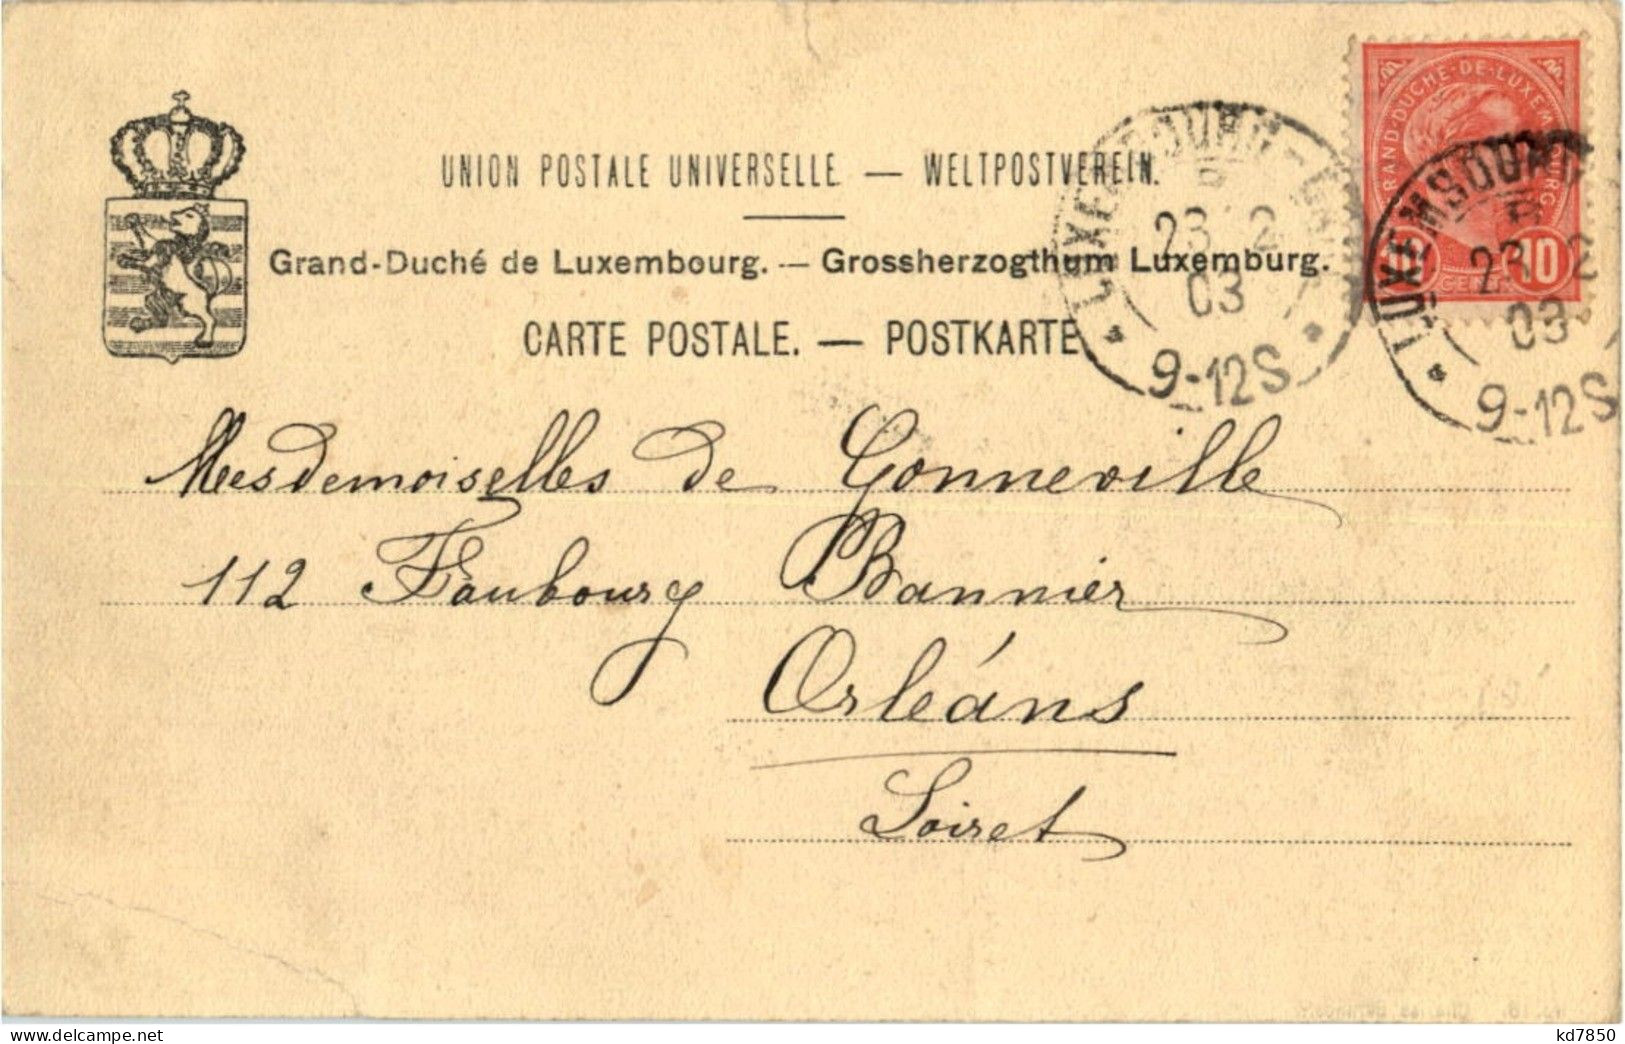 UNION POSTALE UNIVERSELLE — WELTPOSTVEREIN.
Grand-Duché de Luxembourg. — Grossherzogthum Luxemburg.
CARTE POSTALE. — POSTKARTE
GRAND-DUCHÉ-DE-LUXEMBOURG
10 CENT. 10
LUXEMBOURG
23 2
03
9-12S
LUXEMBOURG
23 2
03
9-12S
Mesdemoiselles de Gonneville
112 Faubourg Bannier
Orléans
Loiret
kd7850